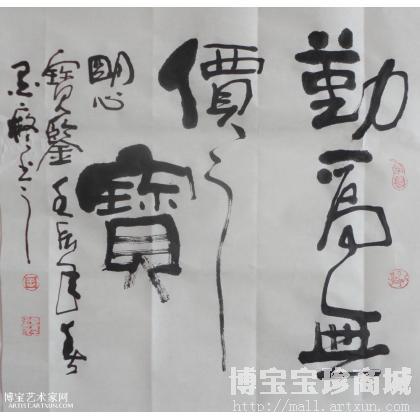 勤爲無
價之寶
明心
寶鑒壬辰年春
博宝艺术家网
ARTIST.ARTXUN.COM
博宝宝珍商城
http://mall.artxun.com